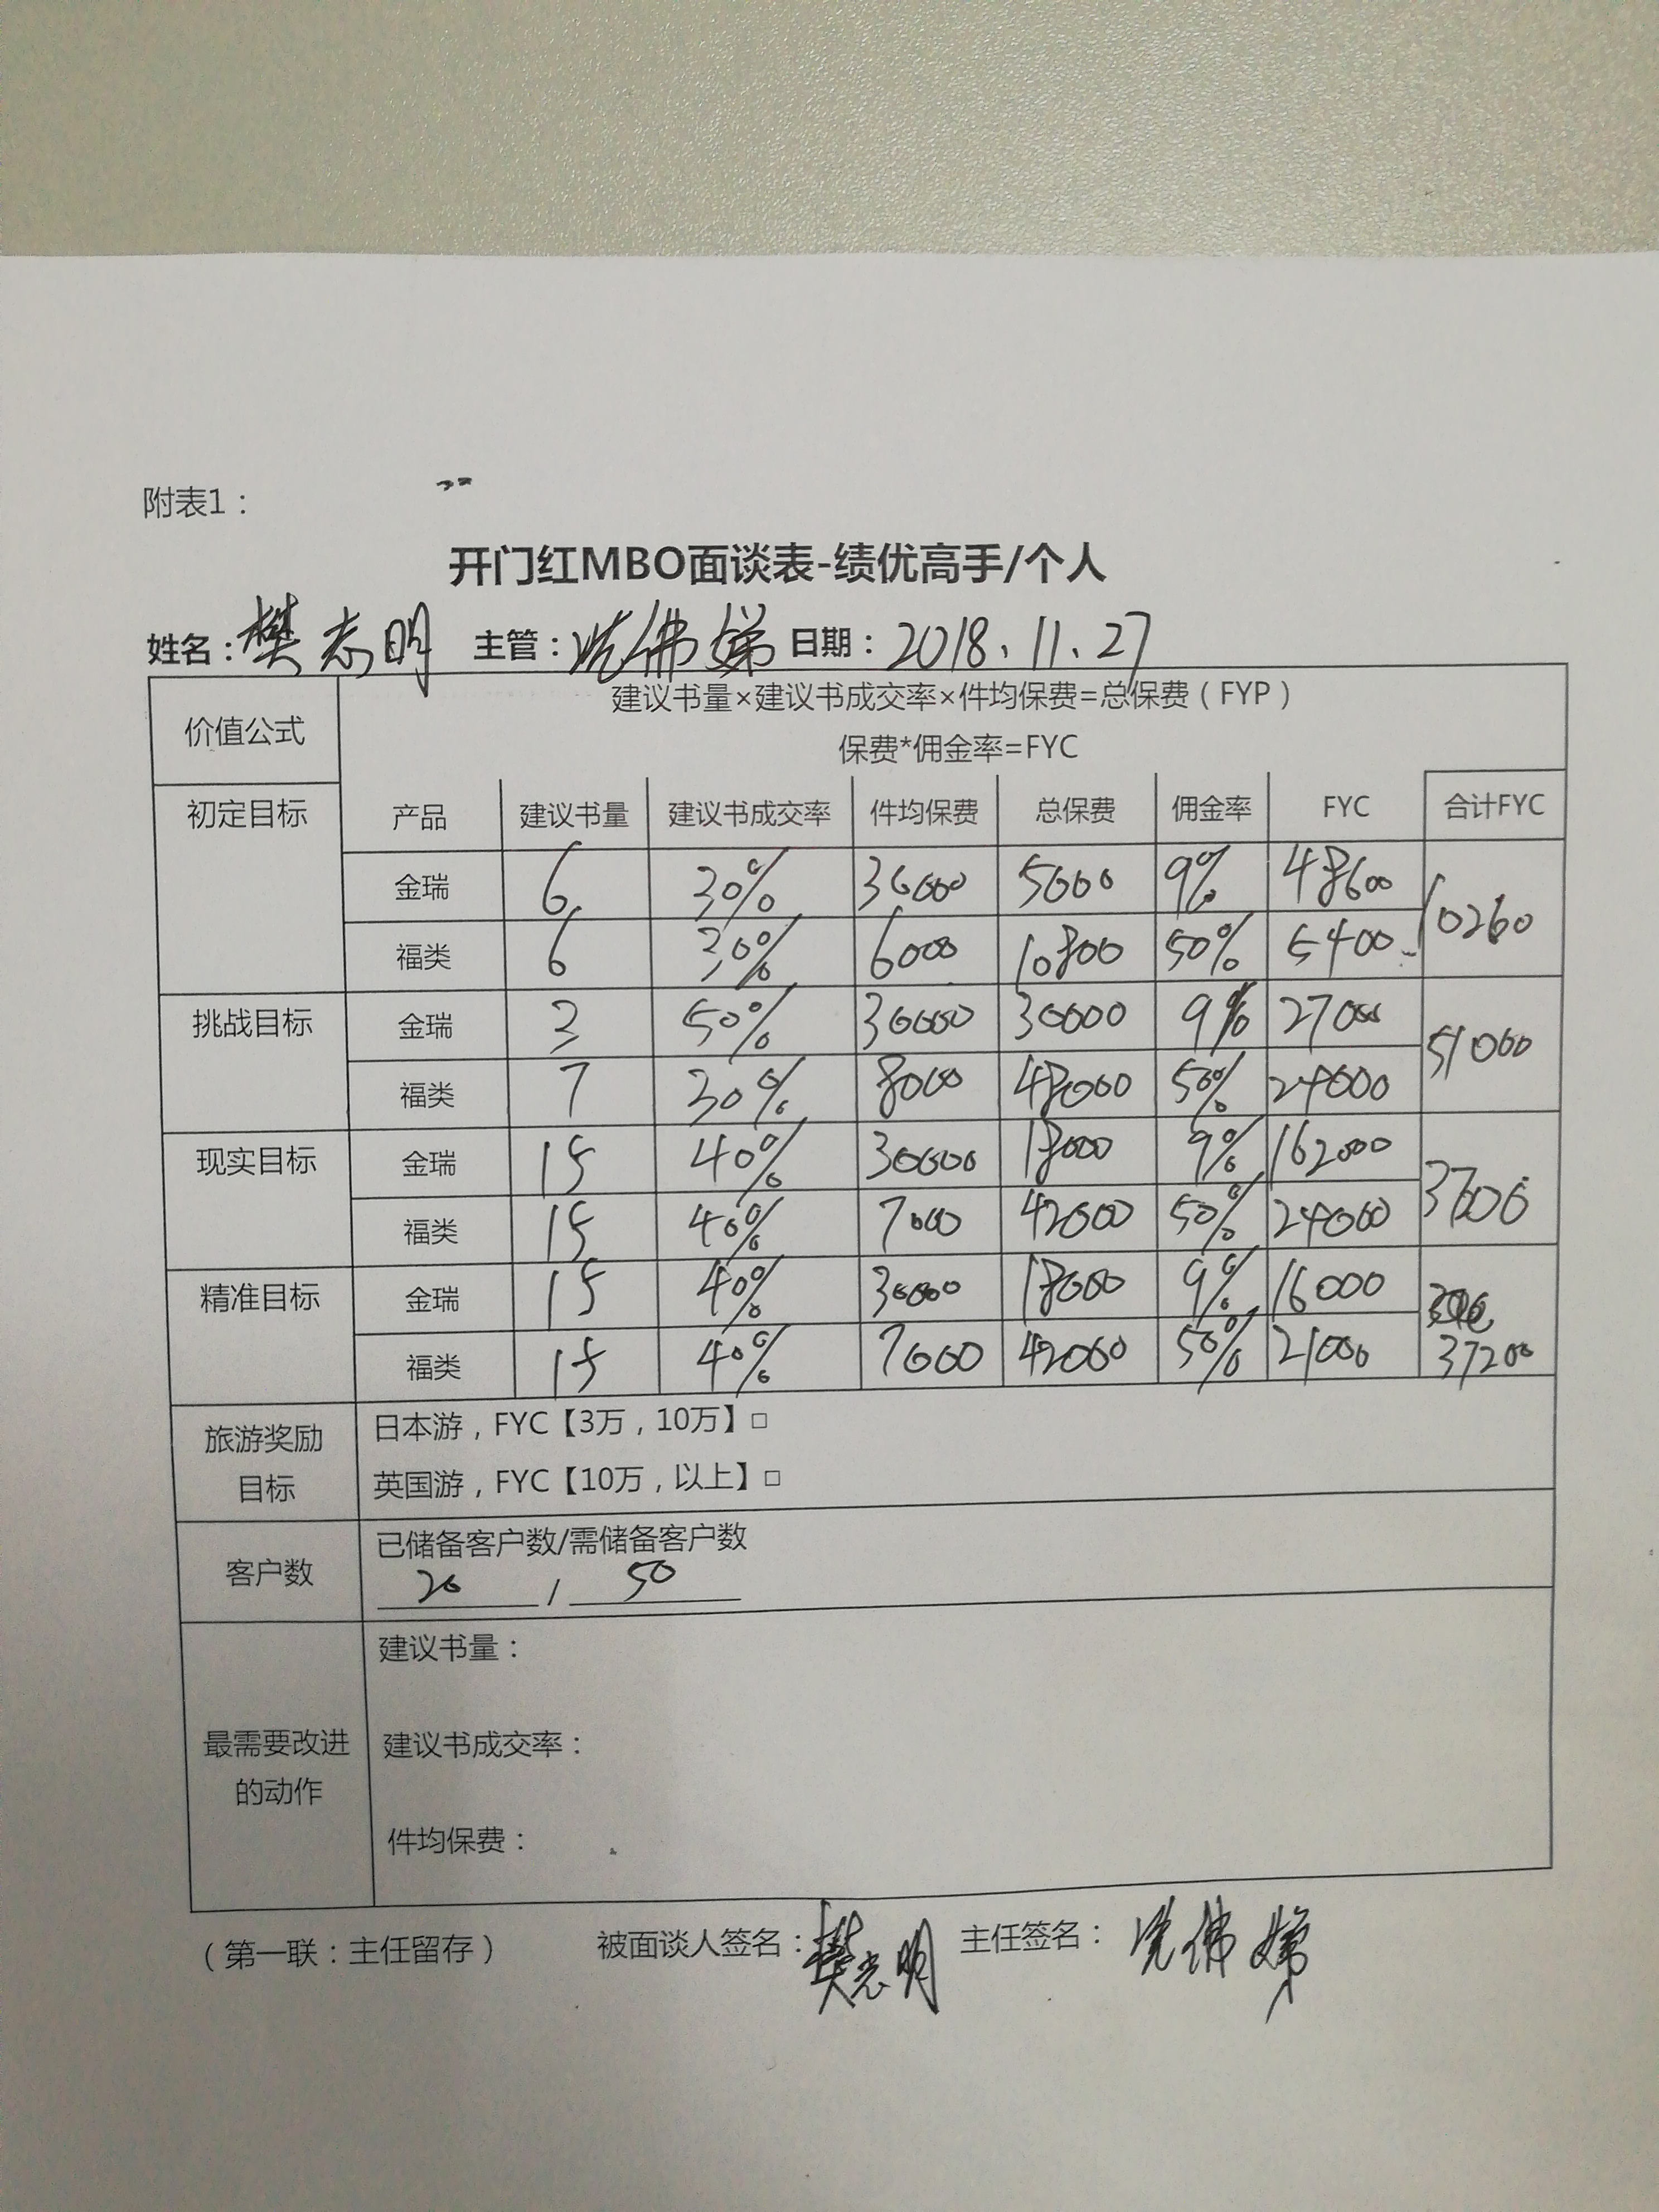 附表1：
开门红MBO面谈表-绩优高手/个人
姓名：樊志明 主管：冼佛娣 日期：2018.11.27
价值公式 建议书量×建议书成交率×件均保费=总保费（FYP）
保费*佣金率=FYC
初定目标 产品 建议书量 建议书成交率 件均保费 总保费 佣金率 FYC 合计FYC
金瑞 6 30% 30000 5000 9% 48600 10260
福类 6 30% 6000 10800 50% 5400
挑战目标 金瑞 3 50% 30000 30000 9% 27000 51000
福类 7 30% 8000 48000 50% 24000
现实目标 金瑞 15 40% 30000 18000 9% 162000
福类 15 40% 7000 42000 50% 24000
精准目标 金瑞 15 40% 30000 18000 9% 16000
福类 15 40% 7000 42000 50% 21000 37200
旅游奖励目标 日本游，FYC【3万，10万】□
英国游，FYC【10万，以上】□
客户数 已储备客户数/需储备客户数
20 / 50
最需要改进的动作 建议书量：
建议书成交率：
件均保费：
（第一联：主任留存） 被面谈人签名：樊志明 主任签名：冼佛娣